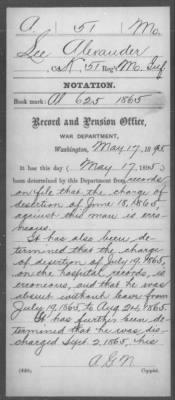 A. 51 Mo.
Lee Alexander
Co. K, 51 Reg't Mo. Inf.
NOTATION.
Book mark: A 625 1865
Record and Pension Office,
WAR DEPARTMENT,
Washington, May 17, 1895
It has this day (May 17, 1895)
been determined by this Department from records
on file that the charge of
desertion of June 18, 1865,
against this man is erro-
neous.
It has also been de-
termined that the charge
of desertion of July 19, 1865,
on the hospital records, is
erroneous, and that he was
absent without leave from
July 19, 1865, to Aug 24, 1865.
It has further been de-
termined that he was dis-
charged Sept. 2, 1865, this
Copyist.